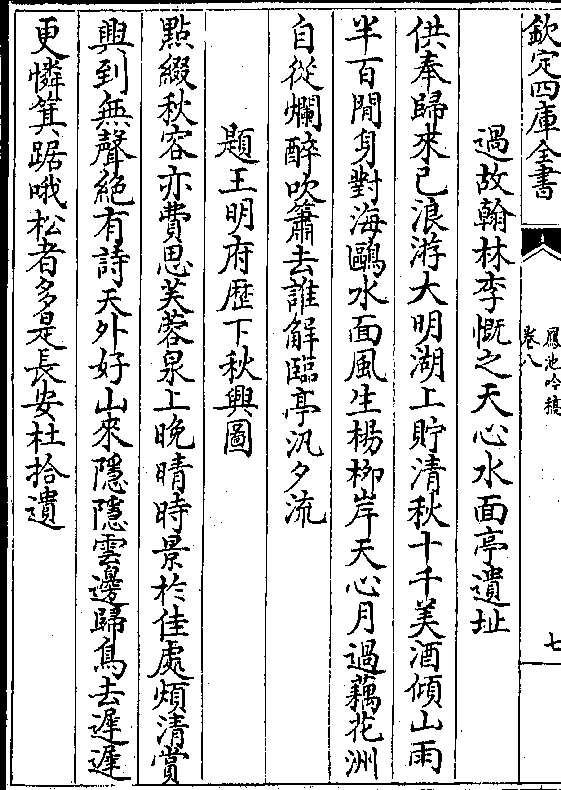 欽定四庫全書
鴈池吟稿
卷八
七
過故翰林李慨之天心水面亭遺址
供奉歸來已浪游大明湖上貯清秋十千美酒傾山雨
半百閒身對海鷗水面風生楊柳岸天心月過藕花洲
自從爛醉吹簫去誰解臨亭汎夕流
題王明府歴下秋興圖
點綴秋容亦費思芙蓉泉上晚晴時景於佳處煩清賞
興到無聲絶有詩天外好山來隱隱雲邊歸鳥去遲遲
更憐箕踞哦松者多是長安杜拾遺